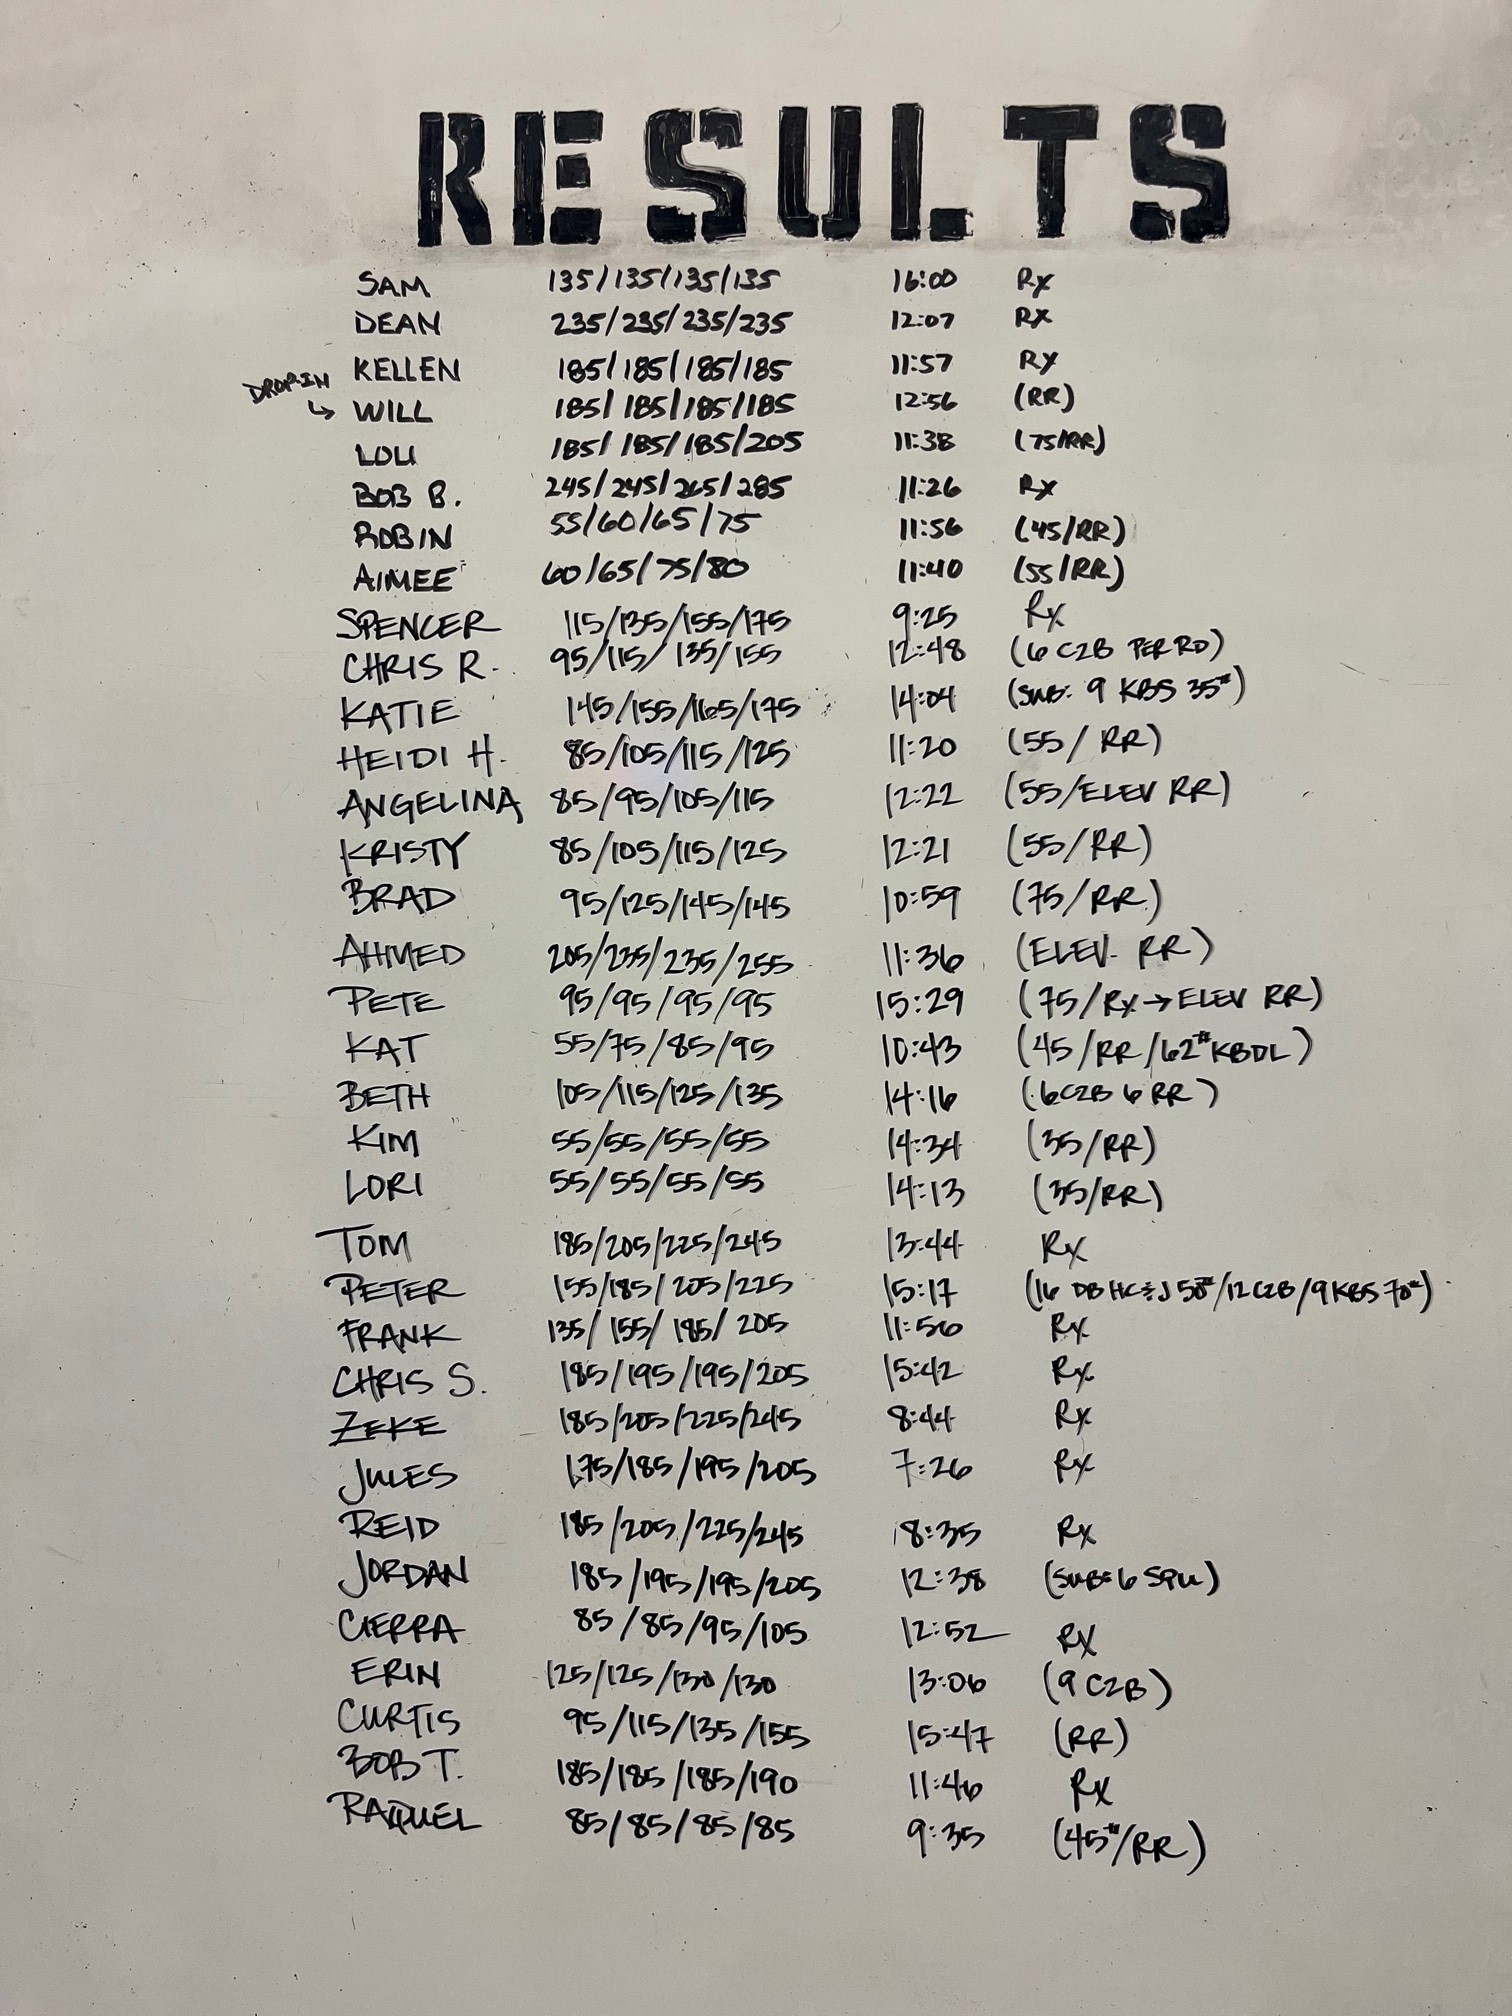 RESULTS
SAM 135/135/135/135 16:00 Rx
DEAN 235/235/235/235 12:07 Rx
KELLEN 185/185/185/185 11:57 Rx
DROP-IN ↳ WILL 185/185/185/185 12:56 (RR)
LOU 185/185/185/205 11:38 (75/RR)
BOB B. 245/245/265/285 11:26 Rx
ROBIN 55/60/65/75 11:56 (45/RR)
AIMEE 60/65/75/80 11:40 (55/RR)
SPENCER 115/135/155/175 9:25 Rx
CHRIS R. 95/115/135/155 12:48 (6 C2B PER RD)
KATIE 145/155/165/175 14:04 (SUB: 9 KBS 35#)
HEIDI H. 85/105/115/125 11:20 (55/RR)
ANGELINA 85/95/105/115 12:22 (55/ELEV RR)
KRISTY 85/105/115/125 12:21 (55/RR)
BRAD 95/125/145/145 10:59 (75/RR)
AHMED 205/235/235/255 11:36 (ELEV. RR)
PETE 95/95/95/95 15:29 (75/Rx→ELEV RR)
KAT 55/75/85/95 10:43 (45/RR/62#KBDL)
BETH 105/115/125/135 14:16 (6C2B 6 RR)
KIM 55/55/55/55 14:34 (35/RR)
LORI 55/55/55/55 14:13 (35/RR)
TOM 185/205/225/245 13:44 Rx
PETER 155/185/205/225 15:17 (16 DB HC&J 50#/12 C2B/9 KBS 70#)
FRANK 135/155/185/205 11:56 Rx
CHRIS S. 185/195/195/205 15:42 Rx
ZEKE 185/205/225/245 8:44 Rx
JULES 175/185/195/205 7:26 Rx
REID 185/205/225/245 8:35 Rx
JORDAN 185/195/195/205 12:38 (SUB: 6 SPU)
CIERRA 85/85/95/105 12:52 RX
ERIN 125/125/130/130 13:06 (9 C2B)
CURTIS 95/115/135/155 15:47 (RR)
BOB T. 185/185/185/190 11:46 Rx
RAQUEL 85/85/85/85 9:35 (45#/RR)